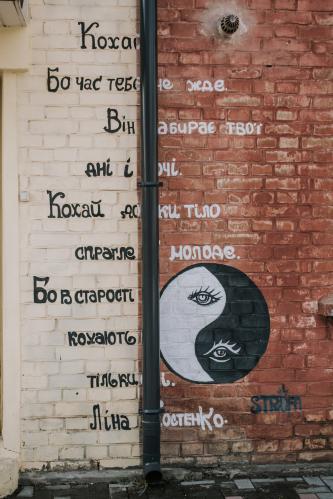 Кохай
Бо час тебе не жде.
Він забирає твої
дні і ночі.
Кохай доки тіло
спрагле молоде.
Бо в старості
кохають
тільки
Ліна Костенко.